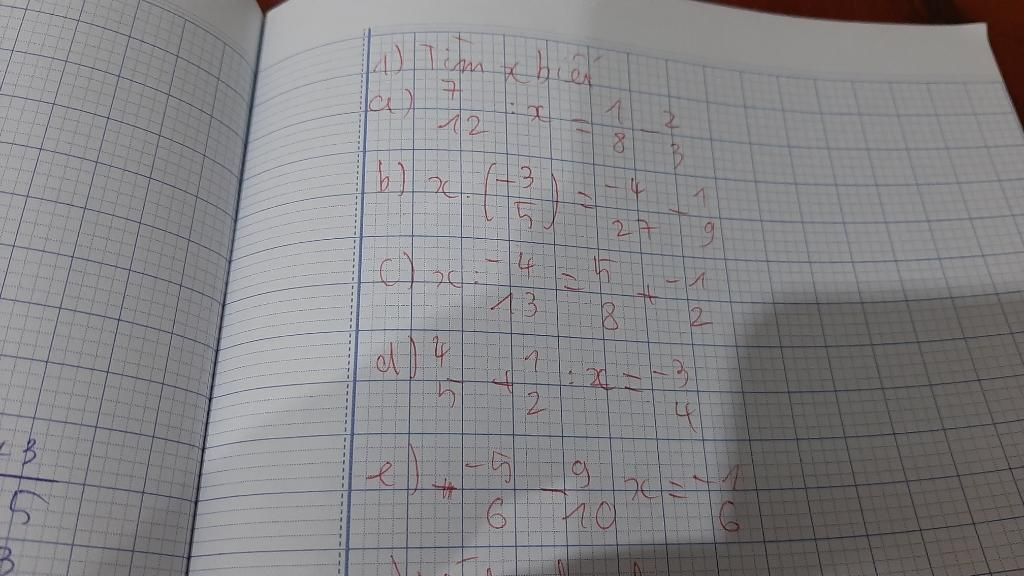 1) Tìm x biết
a) 7/12 : x = 1/8 - 2/3
b) x . (-3/5) = -4/27 - 1/9
c) x : -4/13 = 5/8 + -1/2
d) 4/5 + 1/2 : x = -3/4
e) -5/6 - 9/10 x = -1/6
3
5
3